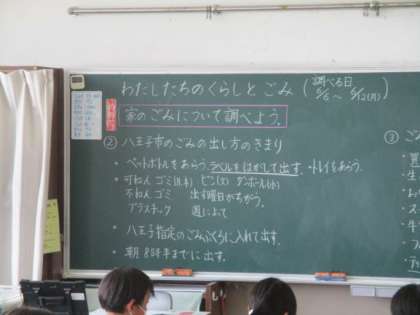 わたしたちのくらしと ごみ (調べる日 5/6 ~ 5/12(月))
家のごみについて調べよう。
② 八王子市のごみの出し方のきまり
・ペットボトルをあらう。ラベルをはがして出す。・トレイをあらう。
・可ねんゴミ ビン ダンボール
不ねんゴミ 出す曜日がちがう。
プラスチック 週によって
・八王子指定のごみぶくろに入れて出す。
・朝8時半までに出す。
③ ご